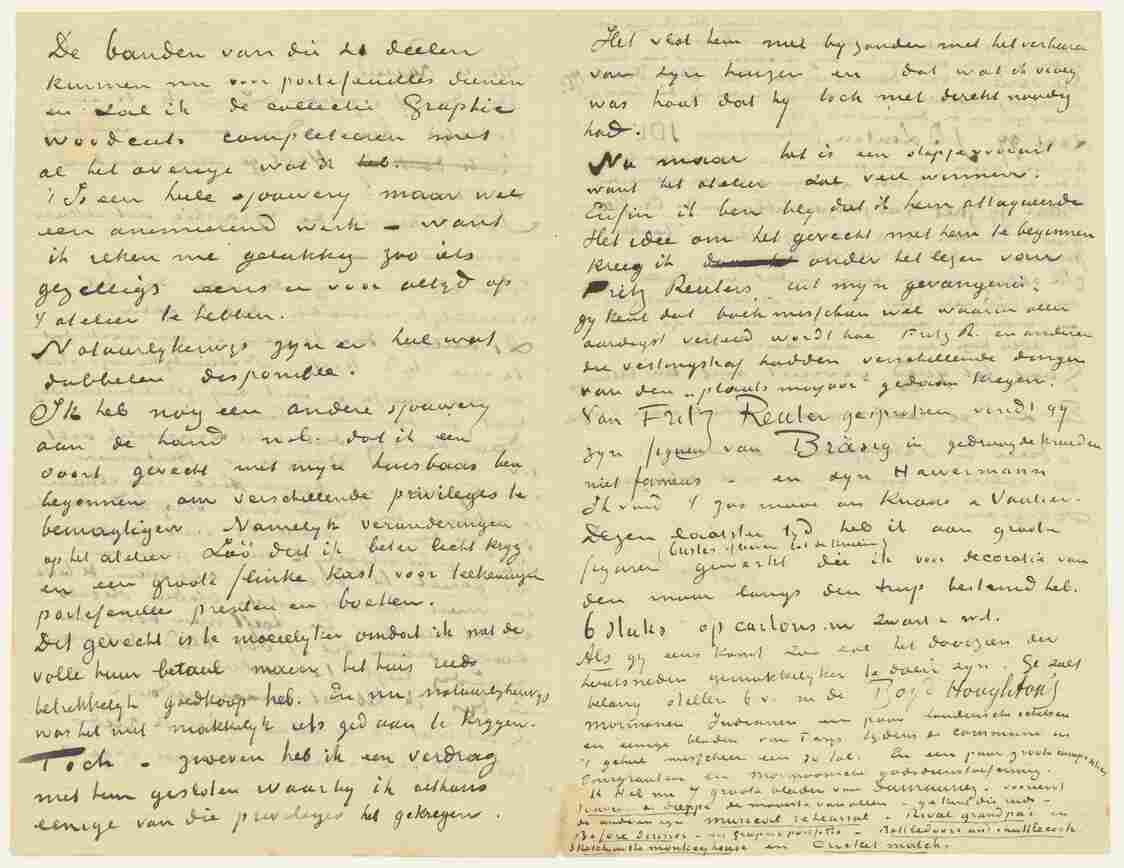 De banden van die 21 deelen
kunnen nu voor portefeuilles dienen
en zal ik de collectie Graphic
woodcuts completeeren met
al het overige wat ik heb.
't Is een heele sjouwerij maar wel
een animeerend werk – want
ik reken me gelukkig zoo iets
gezelligs eens en voor altijd op
't atelier te hebben.
Natuurlijkerwijs zijn er heel wat
dubbelen disponibel.
Ik heb nog een andere sjouwerij
aan de hand n.l. dat ik een
soort gevecht met mijn huisbaas ben
begonnen om verschillende privileges te
bemagtigen. Namelijk veranderingen
op het atelier. Zóó dat ik beter licht krijg
en een groote flinke kast voor teekeningen
portefeuille prenten en boeken.
Dit gevecht is te moeielijker omdat ik niet de
volle huur betaal maar het huis reeds
betrekkelijk goedkoop heb. En nu natuurlijkerwijs
was het niet makkelijk iets gedaan te krijgen.
Toch – zooeven heb ik een verdrag
met hem gesloten waarbij ik althans
eenige van die privileges heb gekregen.
Het vlot hem niet bijzonder met het verhuren
van zijn huizen en dat wat ik vroeg
was hout dat hij toch niet direkt noodig
had.
Nu maar het is een stapje vooruit
want het atelier zal veel winnen.
Enfin ik ben blij dat ik hem attaqueerde
Het idee om het gevecht met hem te beginnen
kreeg ik onder het lezen van
Fritz Reuters uit mijn gevangenis;
gij kent dat boek misschien wel waarin aller
aardigst verteld wordt hoe Fritz R. en anderen
die vestingstraf hadden verschillende dingen
van den „plaats majoor” gedaan kregen.
Van Fritz Reuter gesproken vindt gij
zijn figuur van Bräsig in gedroogde kruiden
niet fameus – en zijn Hawermann
Ik vind 't zoo mooi als Knaus & Vautier.
Dezen laatsten tijd heb ik aan groote
(bustes of even tot de knieën)
figuren gewerkt die ik voor decoratie van
den muur langs den trap bestemd heb.
6 stuks op cartons in zwart & wit.
Als gij eens komt zou zal het doorzien der
houtsneden gemakkelijker te doen zijn. Ge zult
belang stellen b.v. in de Boyd Houghton's
mormonen Indianen een paar Londensche schetsen
en eenige bladen van Parijs tijdens de commune in
't geheel misschien een 20 tal. En een paar groote composities
Emigranten en Mormoonsche godsdienstoefening.
Ik heb nu 4 groote bladen van Dumaurier – vooreerst
Souvr. de Dieppe de mooiste van allen – ge kent die reeds –
de anderen zijn musical rehearsal – Rival grandpas en
Before dinner – en Graphic portfolio – Battledoors and shuttlecock
Sketch in the monkeyhouse en Cricket match.